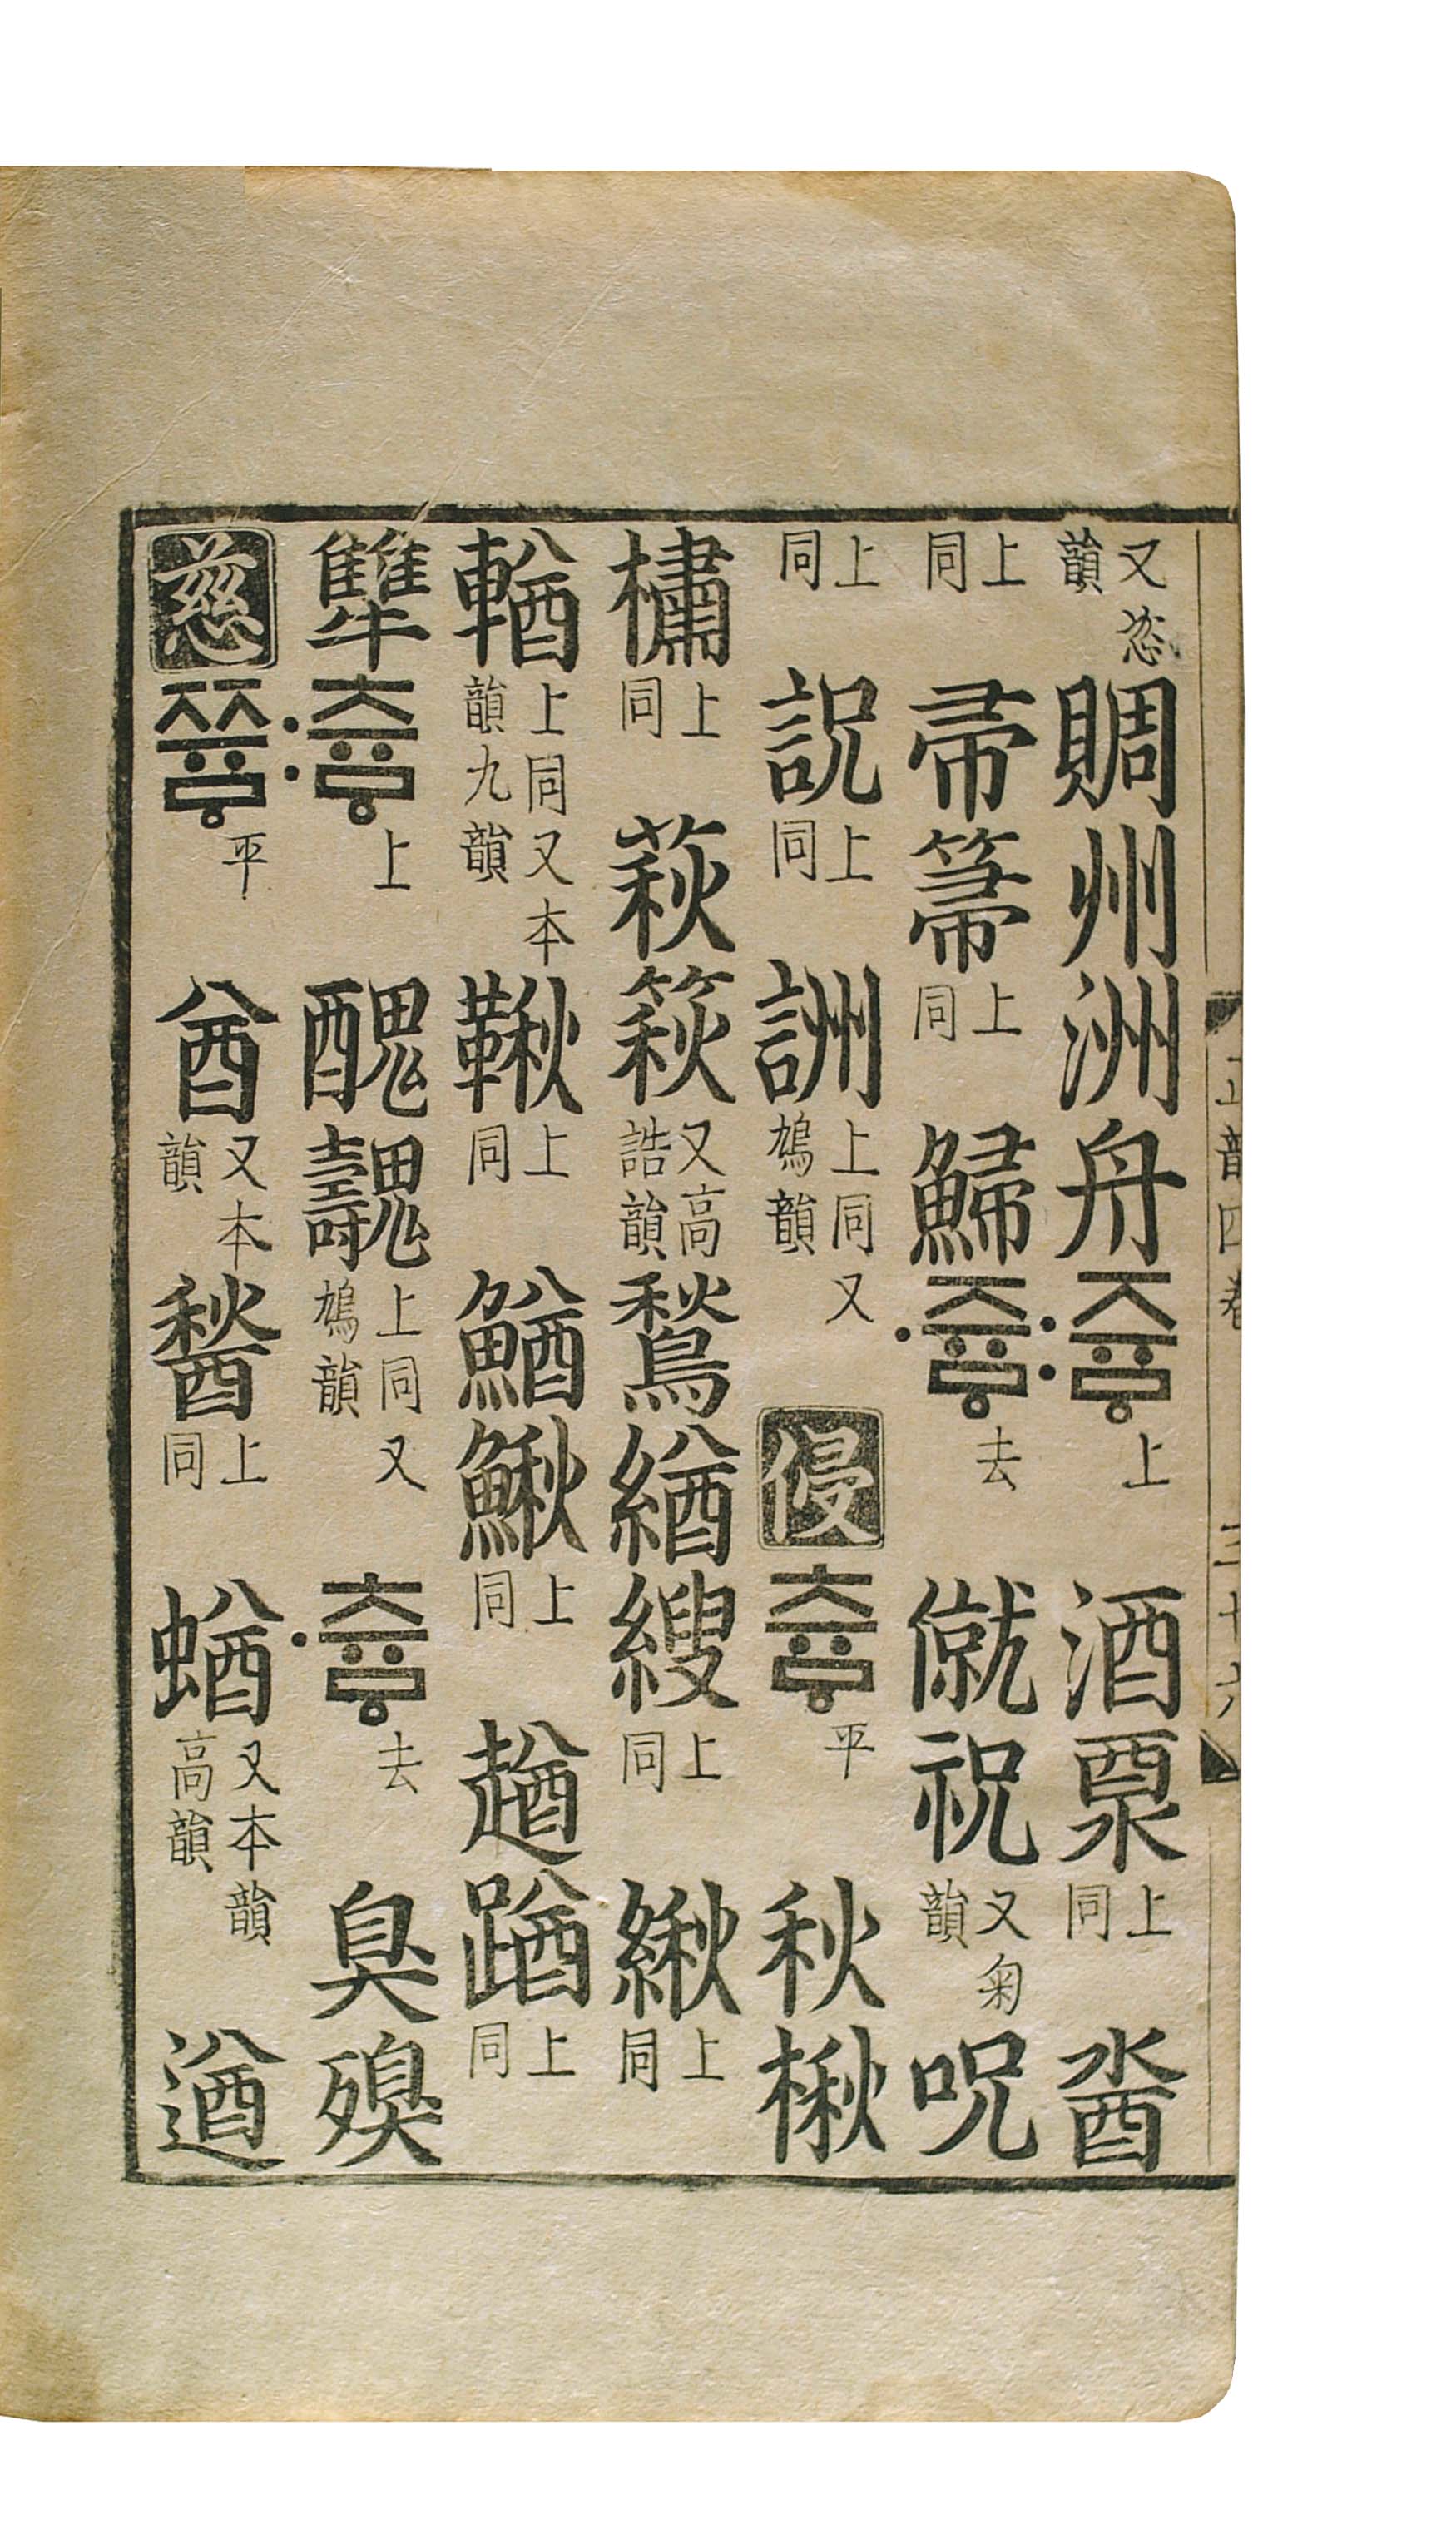 正韻四卷 三十六
又恣韻 賙州洲舟쥬ᇢ〯上 酒 上同
上同 帚箒上同 鯞쥬ᇢ〮去 僦祝又菊韻呪
上同 詋上同 詶上同又鳩韻 侵츄ᇢ平 秋楸
橚上同 萩篍又高誥韻鶖緧 上同 䋺上同
輶上同又本韻九韻鞦上同 鰌鰍上同 趥 上同
犨츄ᇢ〯上 醜魗上同又鳩韻 츄ᇢ〮去 臭殠
慈쮸ᇢ平 酋又本韻 上同 蝤又本韻高韻 遒